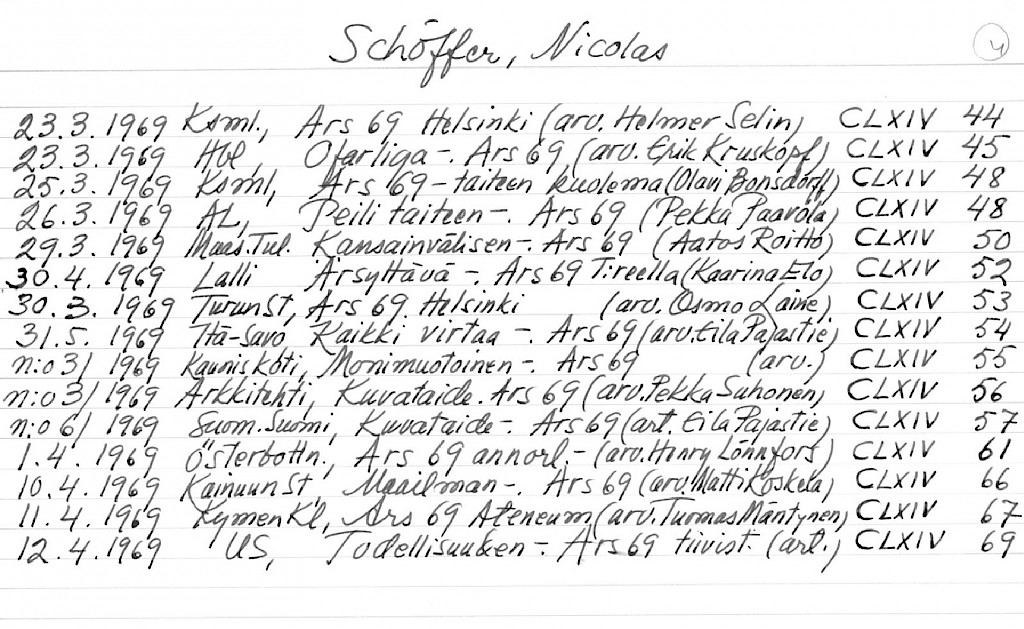 Schöffer, Nicolas 4
23.3.1969 Ksml., Ars 69 Helsinki (arv. Helmer Selin) CLXIV 44
23.3.1969 Hbl, Ofarliga -. Ars 69 (arv. Erik Kruskopf) CLXIV 45
25.3.1969 Ksml, Ars 69 - taiteen kuolema (Olavi Bonsdorff) CLXIV 48
26.3.1969 AL, Peili taiteen -. Ars 69 (Pekka Paavola) CLXIV 48
29.3.1969 Maas.Tul. Kansainvälisen -. Ars 69 (Aatos Roitto) CLXIV 50
30.4.1969 Lalli Ärsyttävä -. Ars 69 T:reella (Kaarina Elo) CLXIV 52
30.3.1969 TurunSt, Ars 69 Helsinki (arv. Osmo Laine) CLXIV 53
31.5.1969 Itä-Savo Kaikki virtaa -. Ars 69 (arv. Eila Pajastie) CLXIV 54
n:o 3/1969 Kaunis Koti, Monimuotoinen -. Ars 69 (arv.) CLXIV 55
n:o 3/1969 Arkkitehti, Kuvataide. Ars 69 (arv. Pekka Suhonen) CLXIV 56
n:o 6/1969 Suom.Suomi, Kuvataide -. Ars 69 (art. Eila Pajastie) CLXIV 57
1.4.1969 Österbottn., Ars 69 annorl. - (arv. Henry Lönnfors) CLXIV 61
10.4.1969 KainuunSt, Maailman -. Ars 69 (arv. Matti Koskela) CLXIV 66
11.4.1969 KymenKl, Ars 69 Ateneum (arv. Tuomas Mäntynen) CLXIV 67
12.4.1969 US, Todellisuuden -. Ars 69 tiivist. (art.) CLXIV 69